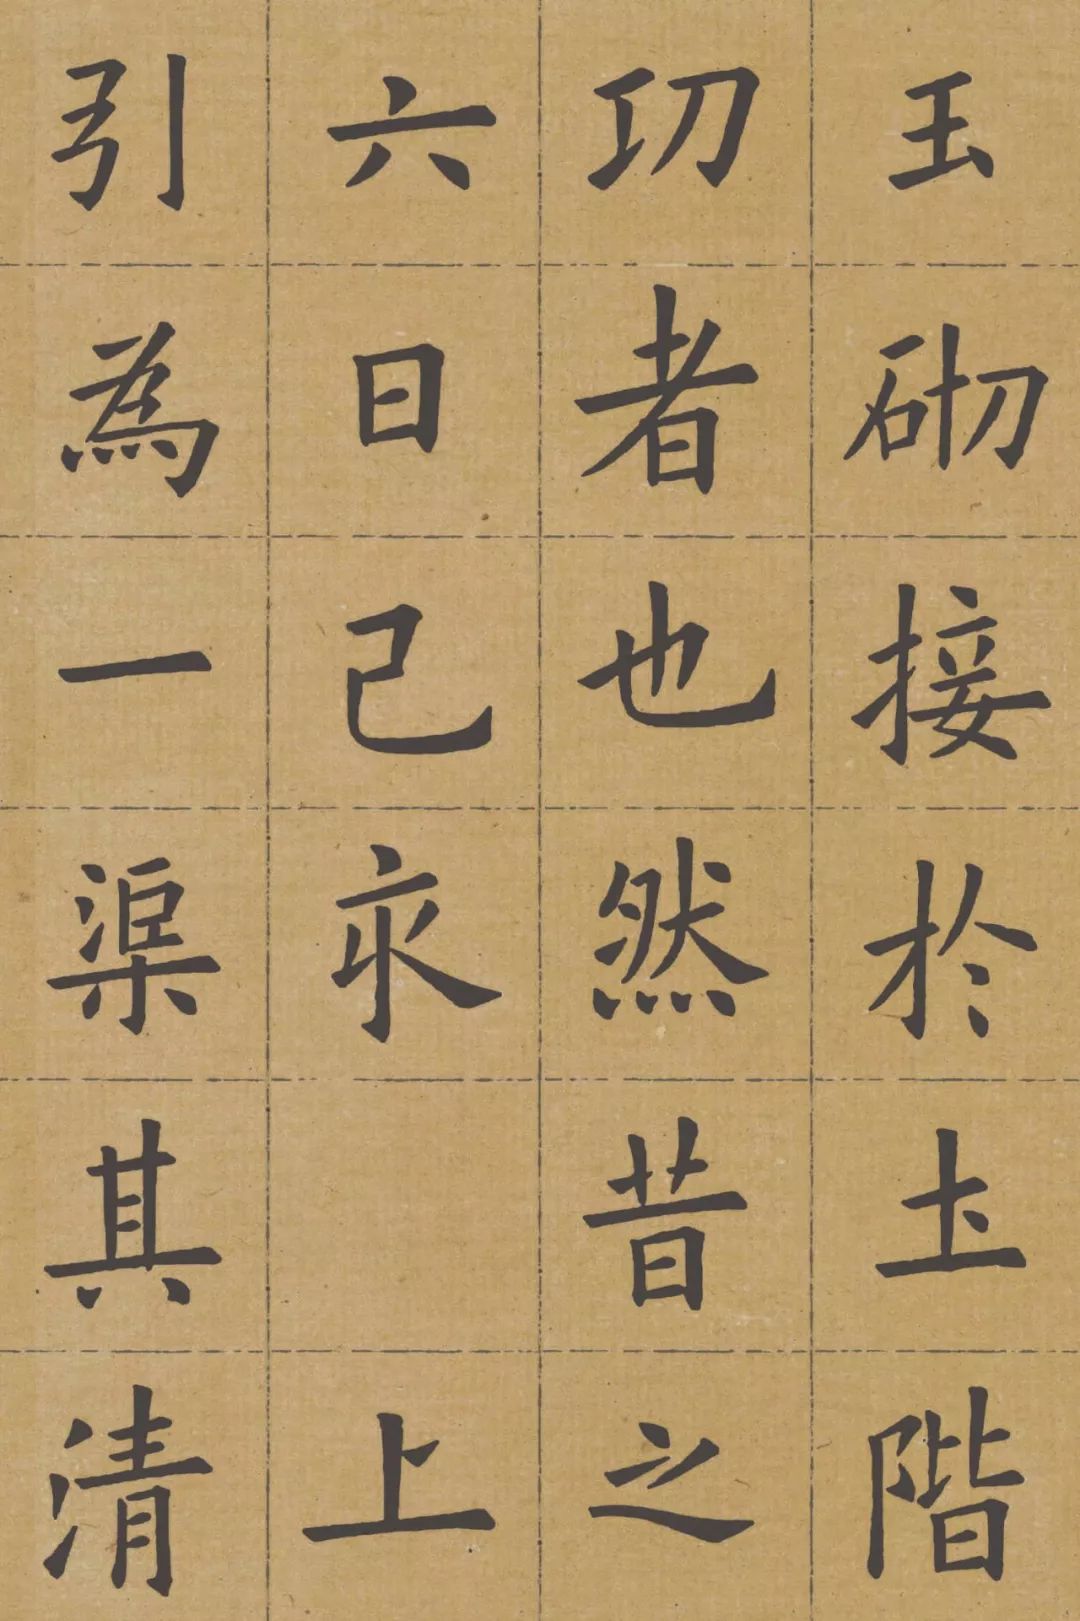 玉砌接於土階
功者也然昔之
六日己亥上
引為一渠其清